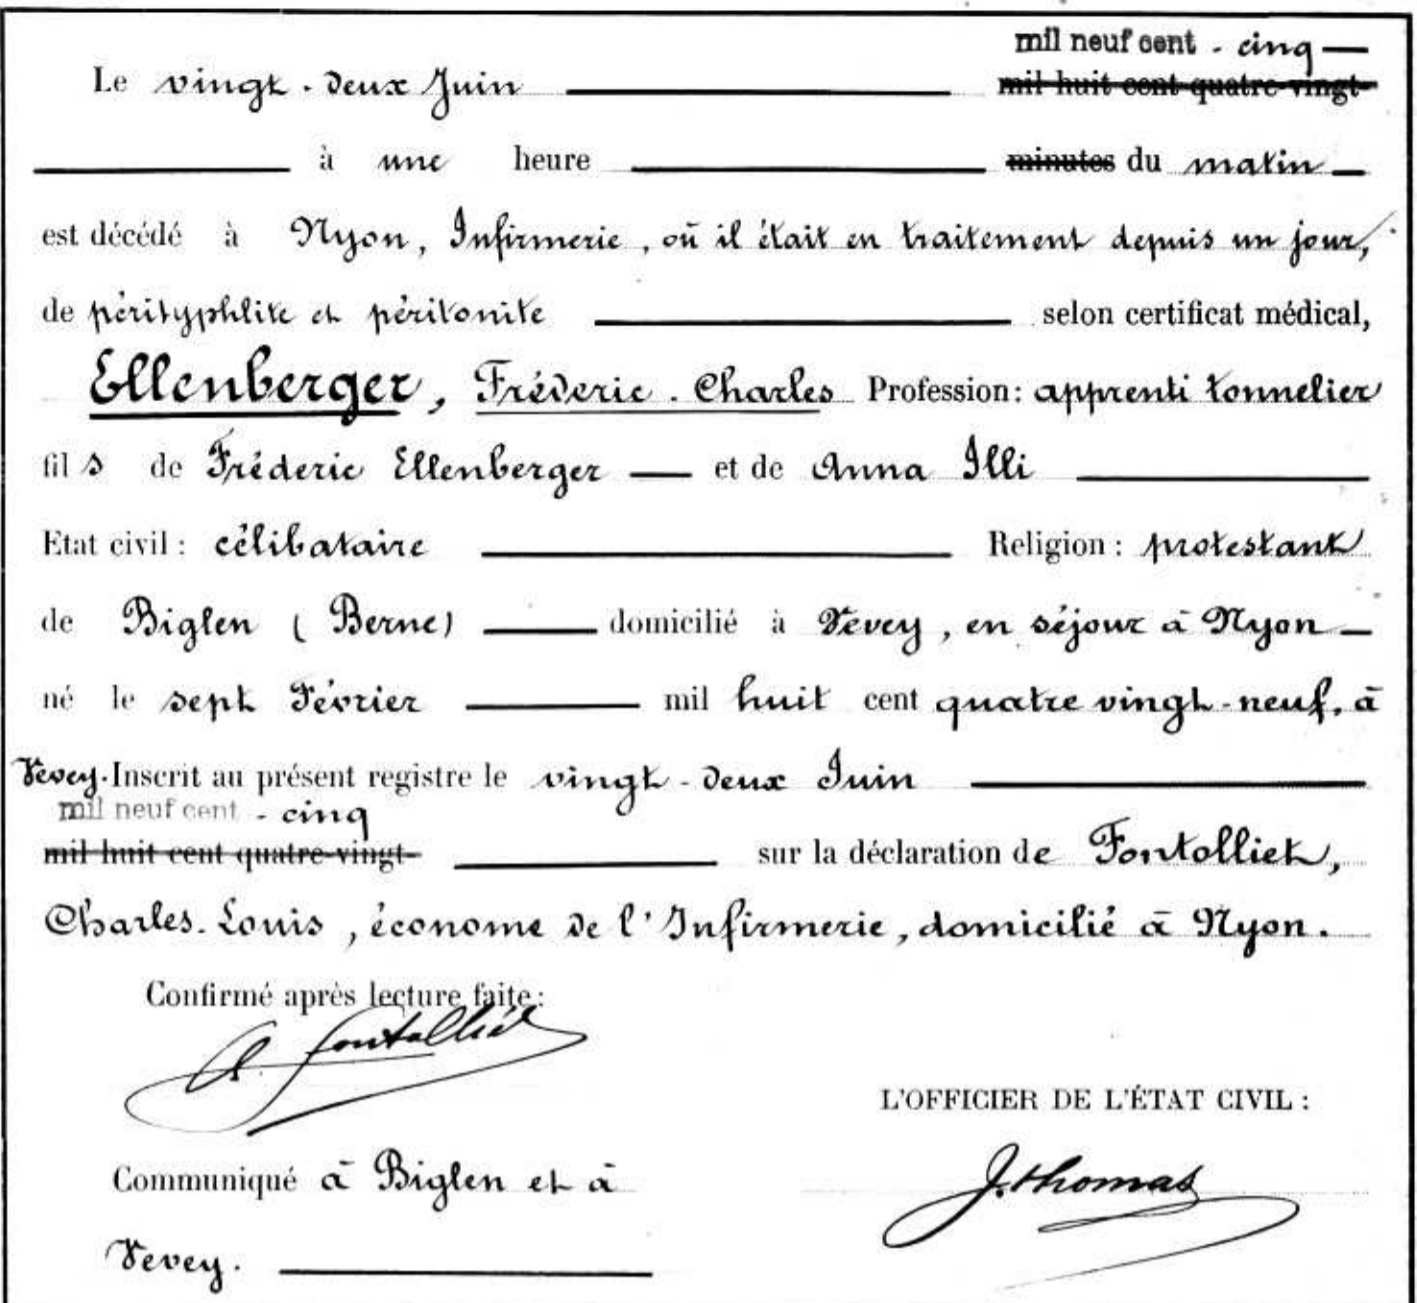 mil neuf cent - cinq
Le vingt-deux Juin mil huit cent quatre-vingt-
à une heure minutes du matin
est décédé à Nyon, Infirmerie, où il était en traitement depuis un jour,
de pérityphlite et péritonite selon certificat médical,
Ellenberger, Fréderic-Charles Profession: apprenti tonnelier
fils de Fréderic Ellenberger et de Anna Illi
Etat civil: célibataire Religion: protestant
de Biglen (Berne) domicilié à Vevey, en séjour à Nyon
né le sept Février mil huit cent quatre vingt-neuf, à
Vevey. Inscrit au présent registre le vingt-deux Juin
mil neuf cent - cinq
mil huit cent quatre-vingt- sur la déclaration de Fontolliet,
Charles-Louis, économe de l'Infirmerie, domicilié à Nyon.
Confirmé après lecture faite:
Fontolliet
L'OFFICIER DE L'ÉTAT CIVIL:
Communiqué à Biglen et à
J. Thomas
Vevey.